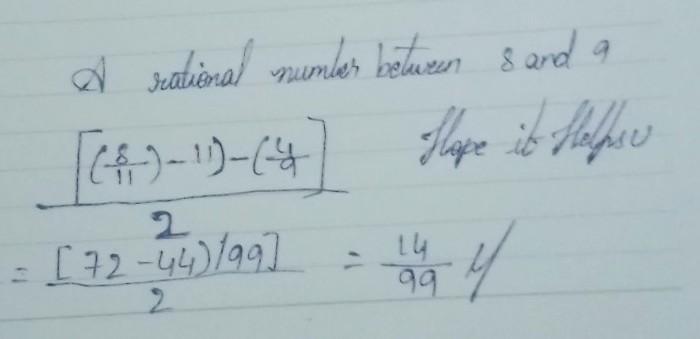 A rational number between 8 and 9
[(8/11) - 11) - (4/9)] Hope it Helps u
2
= [72 - 44)/99] = 14/99
2